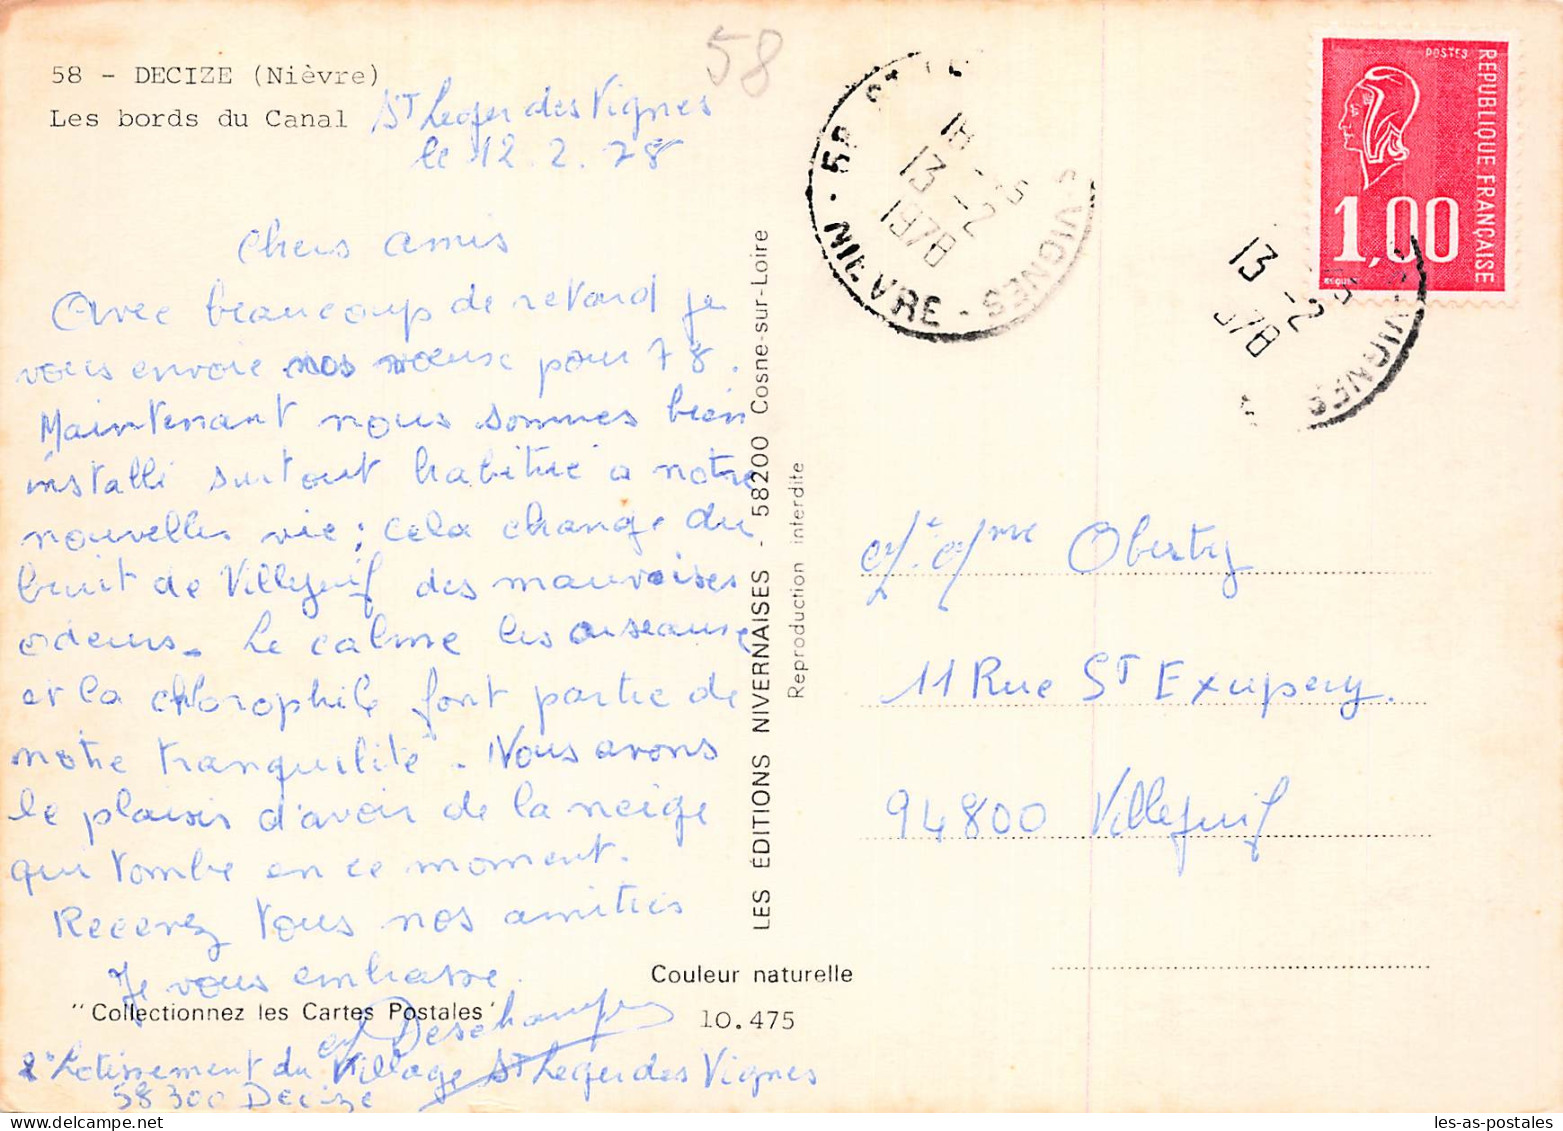 58
58 - DECIZE (Nièvre)
Les bords du Canal
St Leger des Vignes
le 12.2.78
Chers amis
Avec beaucoup de retard je
vous envoie nos vœux pour 78.
Maintenant nous sommes bien
installé surtout habitué a notre
nouvelles vie; cela change du
bruit de Villejuif des mauvaises
odeurs. Le calme les oiseaux
et la chlorophile font partie de
notre tranquilité. Nous avons
le plaisir d'avoir de la neige
qui tombe en ce moment.
Recevez tous nos amitiés
Je vous embrasse.
"Collectionnez les Cartes Postales"
Deschamps
Lotissement du Village St Leger des Vignes
58300 Decize
LES ÉDITIONS NIVERNAISES - 58200 Cosne-sur-Loire
Reproduction interdite
Couleur naturelle
10.475
58
VIGNES
NIEVRE
13 -2
1978
POSTES
REPUBLIQUE FRANÇAISE
1,00
13 -2
978
VIGNES
M. Mme Oberty
11 Rue St Exupery.
94800 Villejuif
les-as-postales.com